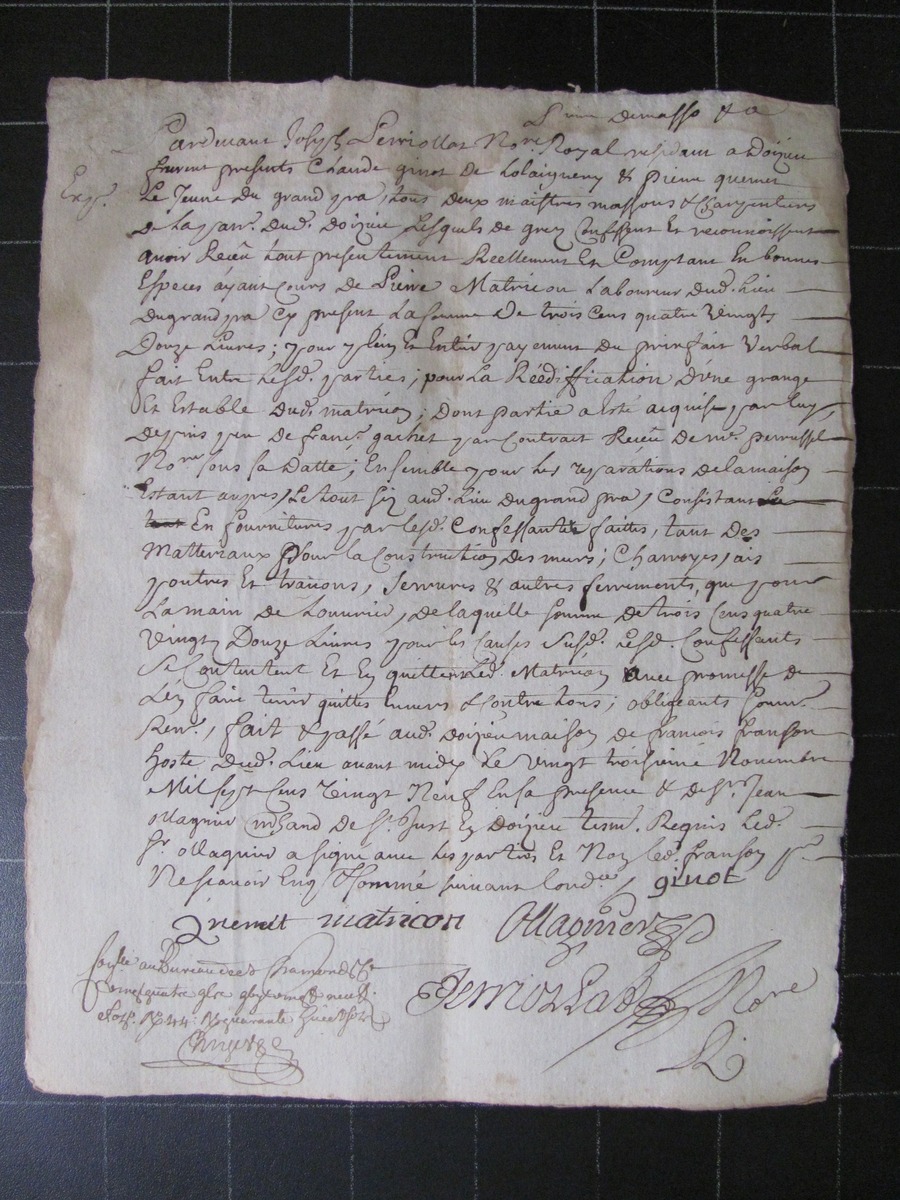 Pardevant Joseph Perriollat No.re Royal residant a Doizieu
furent presents Claude ginot de & pierre quemet
Exp.
Le Jeune du grand pra, tous deux maistres massons & charpentiers
de la parr. dud. doizieu Lesquels de grez Confessent Et reconnoissent
avoir Receu tout presentement Reellement Et Comptant En bonnes
Especes ayant Cours de Pierre Matricon Laboureur dud. Lieu
Du grand pra Cy present La somme De trois Cens quatre Vingts
Douze Livres; pour plein Et Entier payement du prixfait Verbal
fait Entre Lesd. parties; pour La Reédiffication d'une grange
Et Estable dud. matricon; dont partie a Esté acquise par luy
depuis peu de franc. gachet par Contrait Receu de m.e
No.re sous sa datte; Ensemble pour Les reparations de la maison
Estant aupres, Le tout siz aud. Lieu du grand pra, Consistant
En fournitures par lesd. Confessants faites, tant Des
Matteriaux pour la Construction des murs; Charroyes, ais
poutres Et travons, serrures & autres ferrements, que pour
La main de Louvrier, de laquelle somme de trois Cens quatre
vingtz Douze Livres pour les Causes Susd. Lesd. Confessants
se Contentent Et En quittent Led. Matricon avec promesse de
L'en faire tenir quitte Envers & Contre tous; obligeants soum.
Ren., fait & passé aud. doizieu maison de francois franson
hoste dud. Lieu avant midy Le vingt troisieme Novembre
Mil sept Cens vingt Neuf En sa presence & de S.r Jean
ollagnier m.chand de S.t Just En Doizieu tesm. Requis Led.
S.r ollagnier a signé avec les parties Et Non led. franson p.r
Ne scavoir Enq. & sommé suivant lord.ce, ginot
quemet matricon Ollagnier
au Bureau de S.t
Perriollat No.re